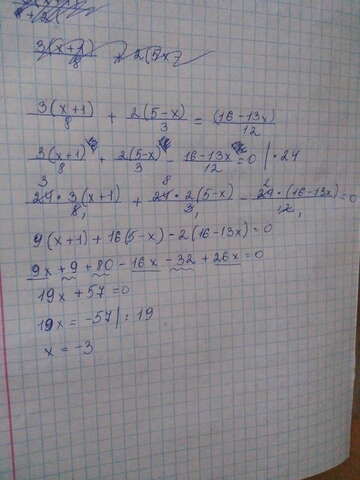 3(x+1)/8 + 2(5-x)/3 = (16-13x)/12
3(x+1)/8 + 2(5-x)/3 - 16-13x/12 = 0 | · 24
3 8 2
24 · 3(x+1)/8 + 24 · 2(5-x)/3 - 24 · (16-13x)/12 = 0
9(x+1) + 16(5-x) - 2(16-13x) = 0
9x + 9 + 80 - 16x - 32 + 26x = 0
19x + 57 = 0
19x = -57 | : 19
x = -3